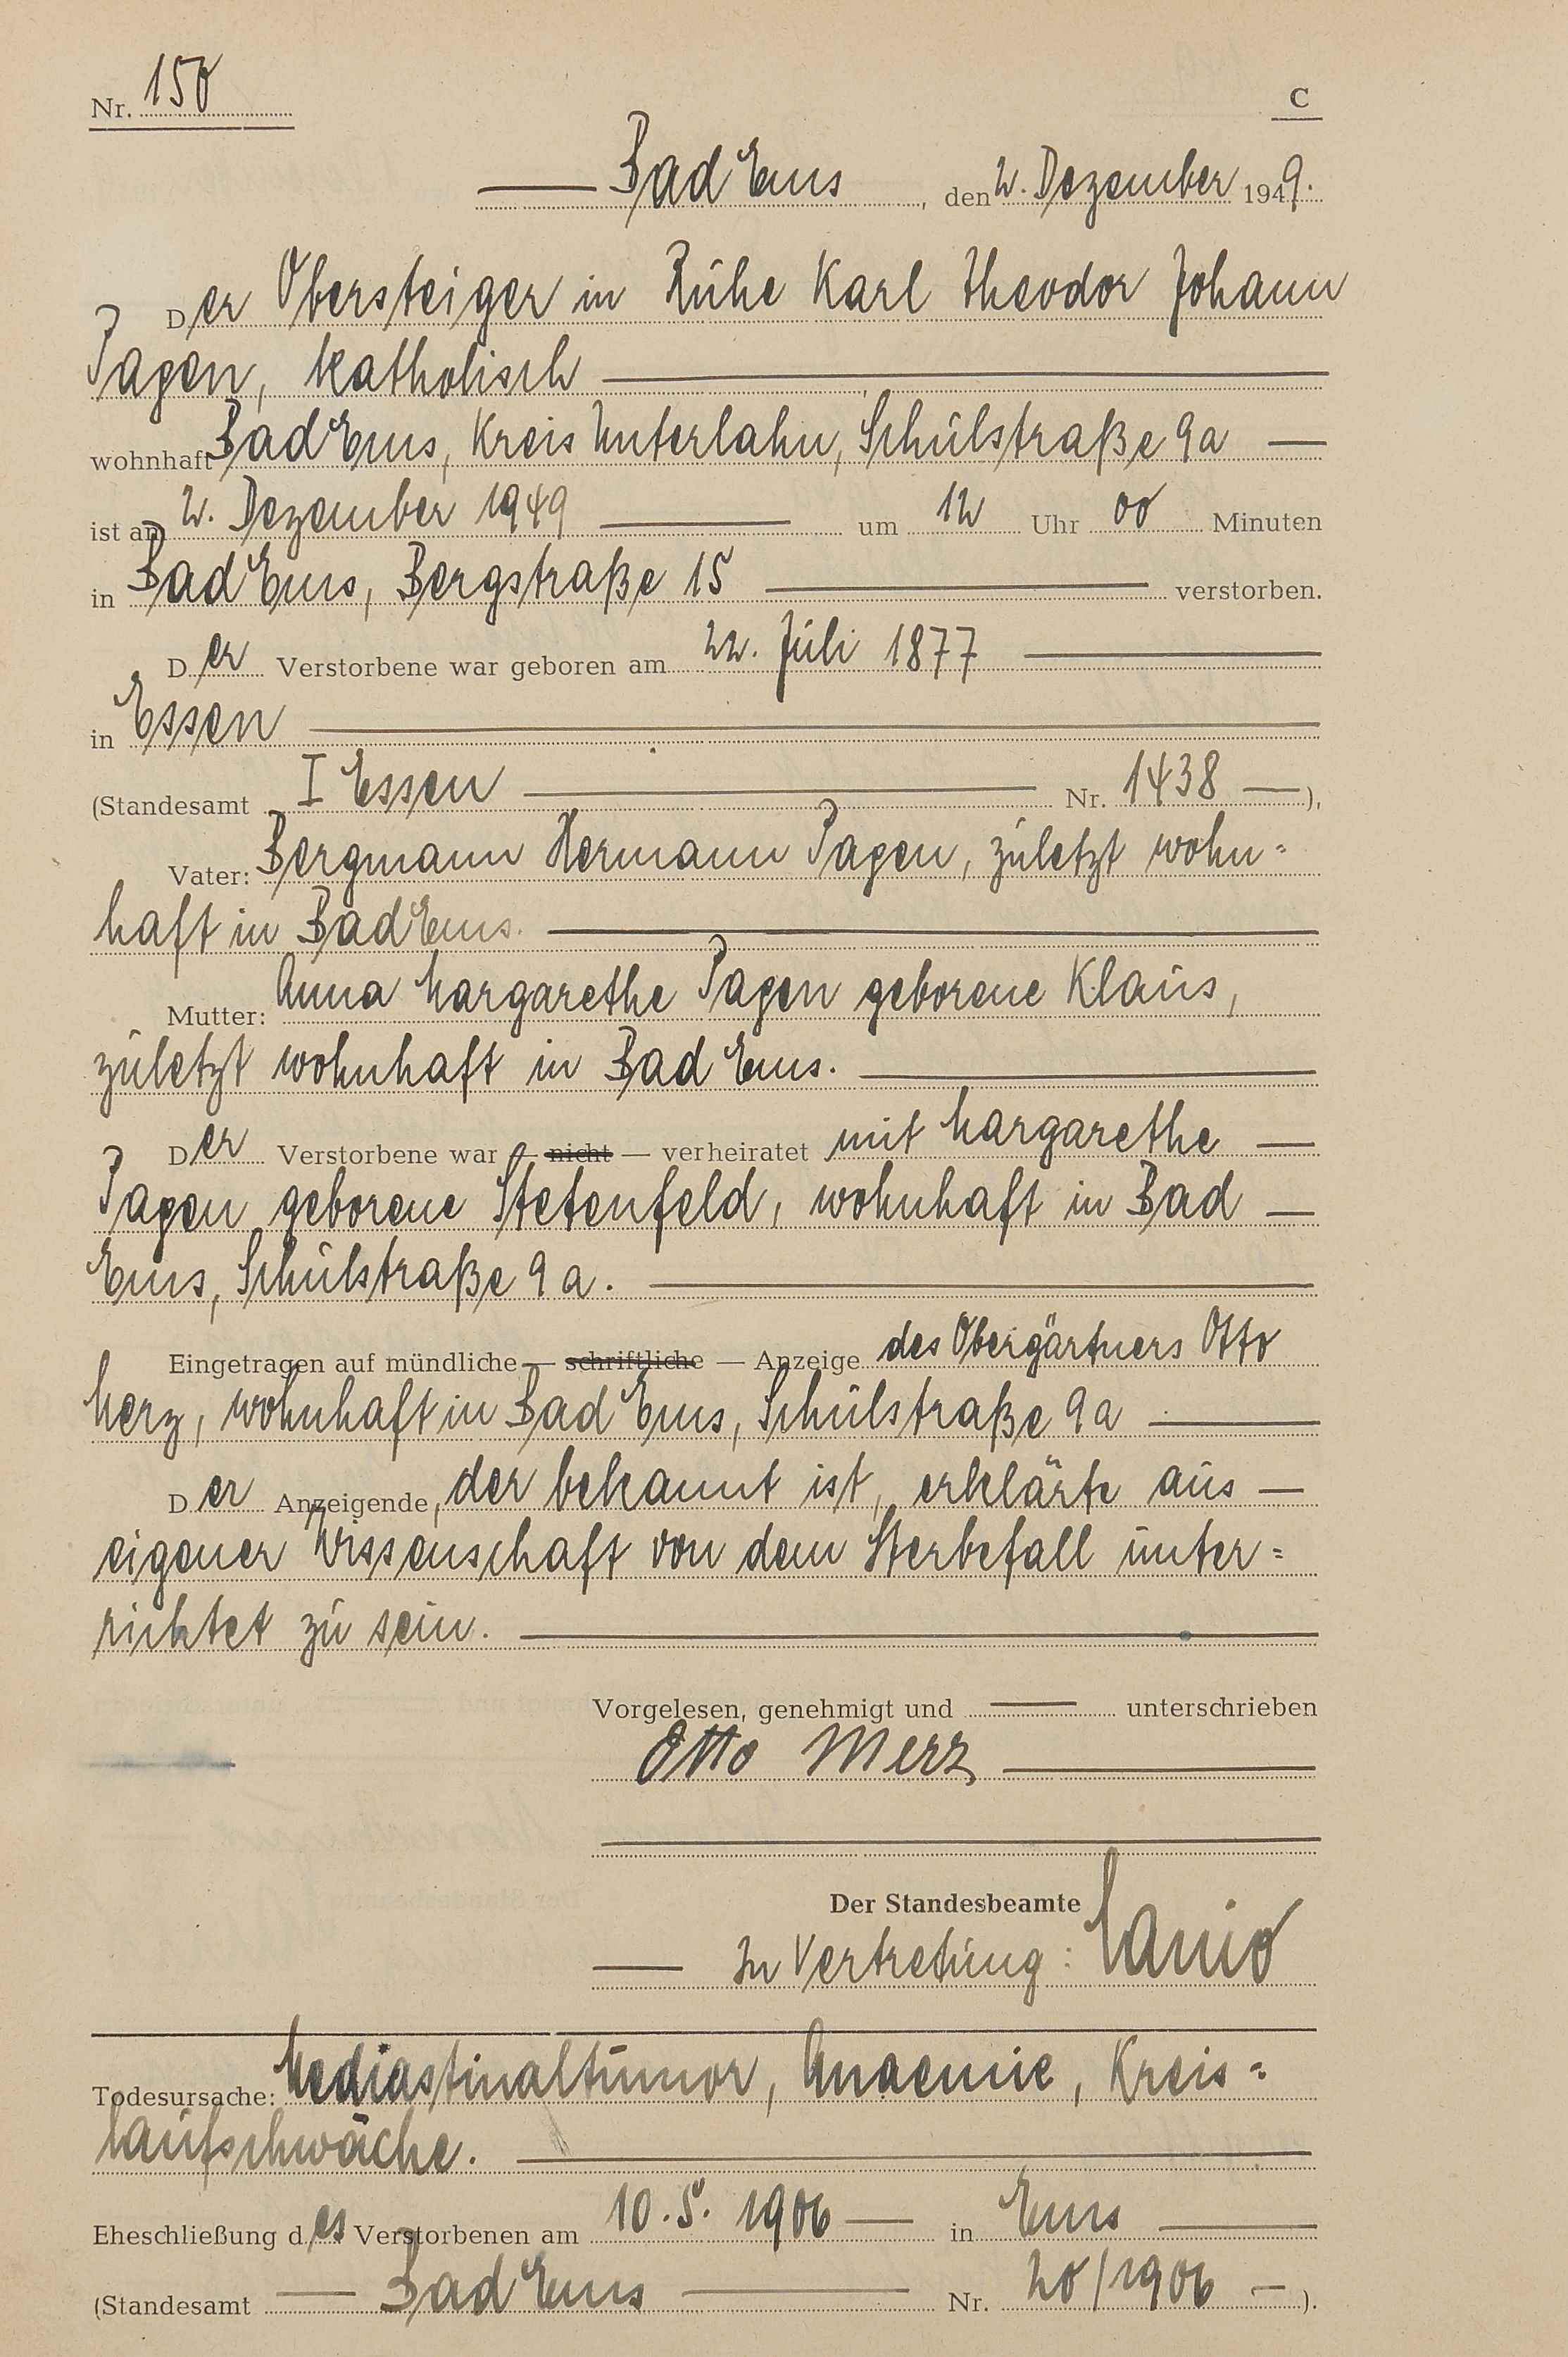 Nr. 150
C
Bad Ems, den 2. Dezember 1949.
Der Obersteiger in Ruhe Karl Theodor Johann
Pagen, katholisch
wohnhaft Bad Ems, Kreis Unterlahn, Schulstraße 9a
ist am 2. Dezember 1949 um 12 Uhr 00 Minuten
in Bad Ems, Bergstraße 15 verstorben.
Der Verstorbene war geboren am 22. Juli 1877
in Essen
(Standesamt I Essen Nr. 1438 —),
Vater: Bergmann Hermann Pagen, zuletzt wohn=
haft in Bad Ems.
Mutter: Anna Margarethe Pagen geborene Klaus,
zuletzt wohnhaft in Bad Ems.
Der Verstorbene war — nicht — verheiratet mit Margarethe —
Pagen geborene Stetenfeld, wohnhaft in Bad —
Ems, Schulstraße 9a.
Eingetragen auf mündliche — schriftliche — Anzeige des Obergärtners Otto
Merz, wohnhaft in Bad Ems, Schulstraße 9a
Der Anzeigende, der bekannt ist, erklärte aus —
eigener Wissenschaft von dem Sterbefall unter=
richtet zu sein.
Vorgelesen, genehmigt und — unterschrieben
Otto Merz
Der Standesbeamte
In Vertretung: Lanio
Todesursache: Mediastinaltumor, Anaemie, Kreis=
laufschwäche.
Eheschließung des Verstorbenen am 10.5.1906 — in Ems
(Standesamt — Bad Ems — Nr. 20/1906 —).